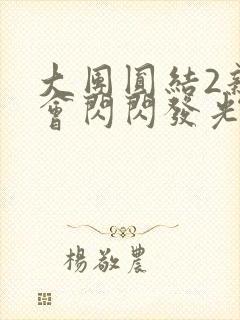 大團圓結2新
會閃閃發光
楊敬農